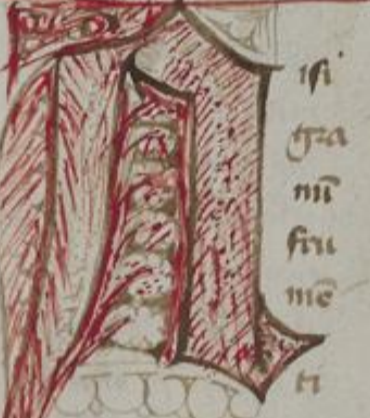 N
isi
gra
nū
fru
mē
ti